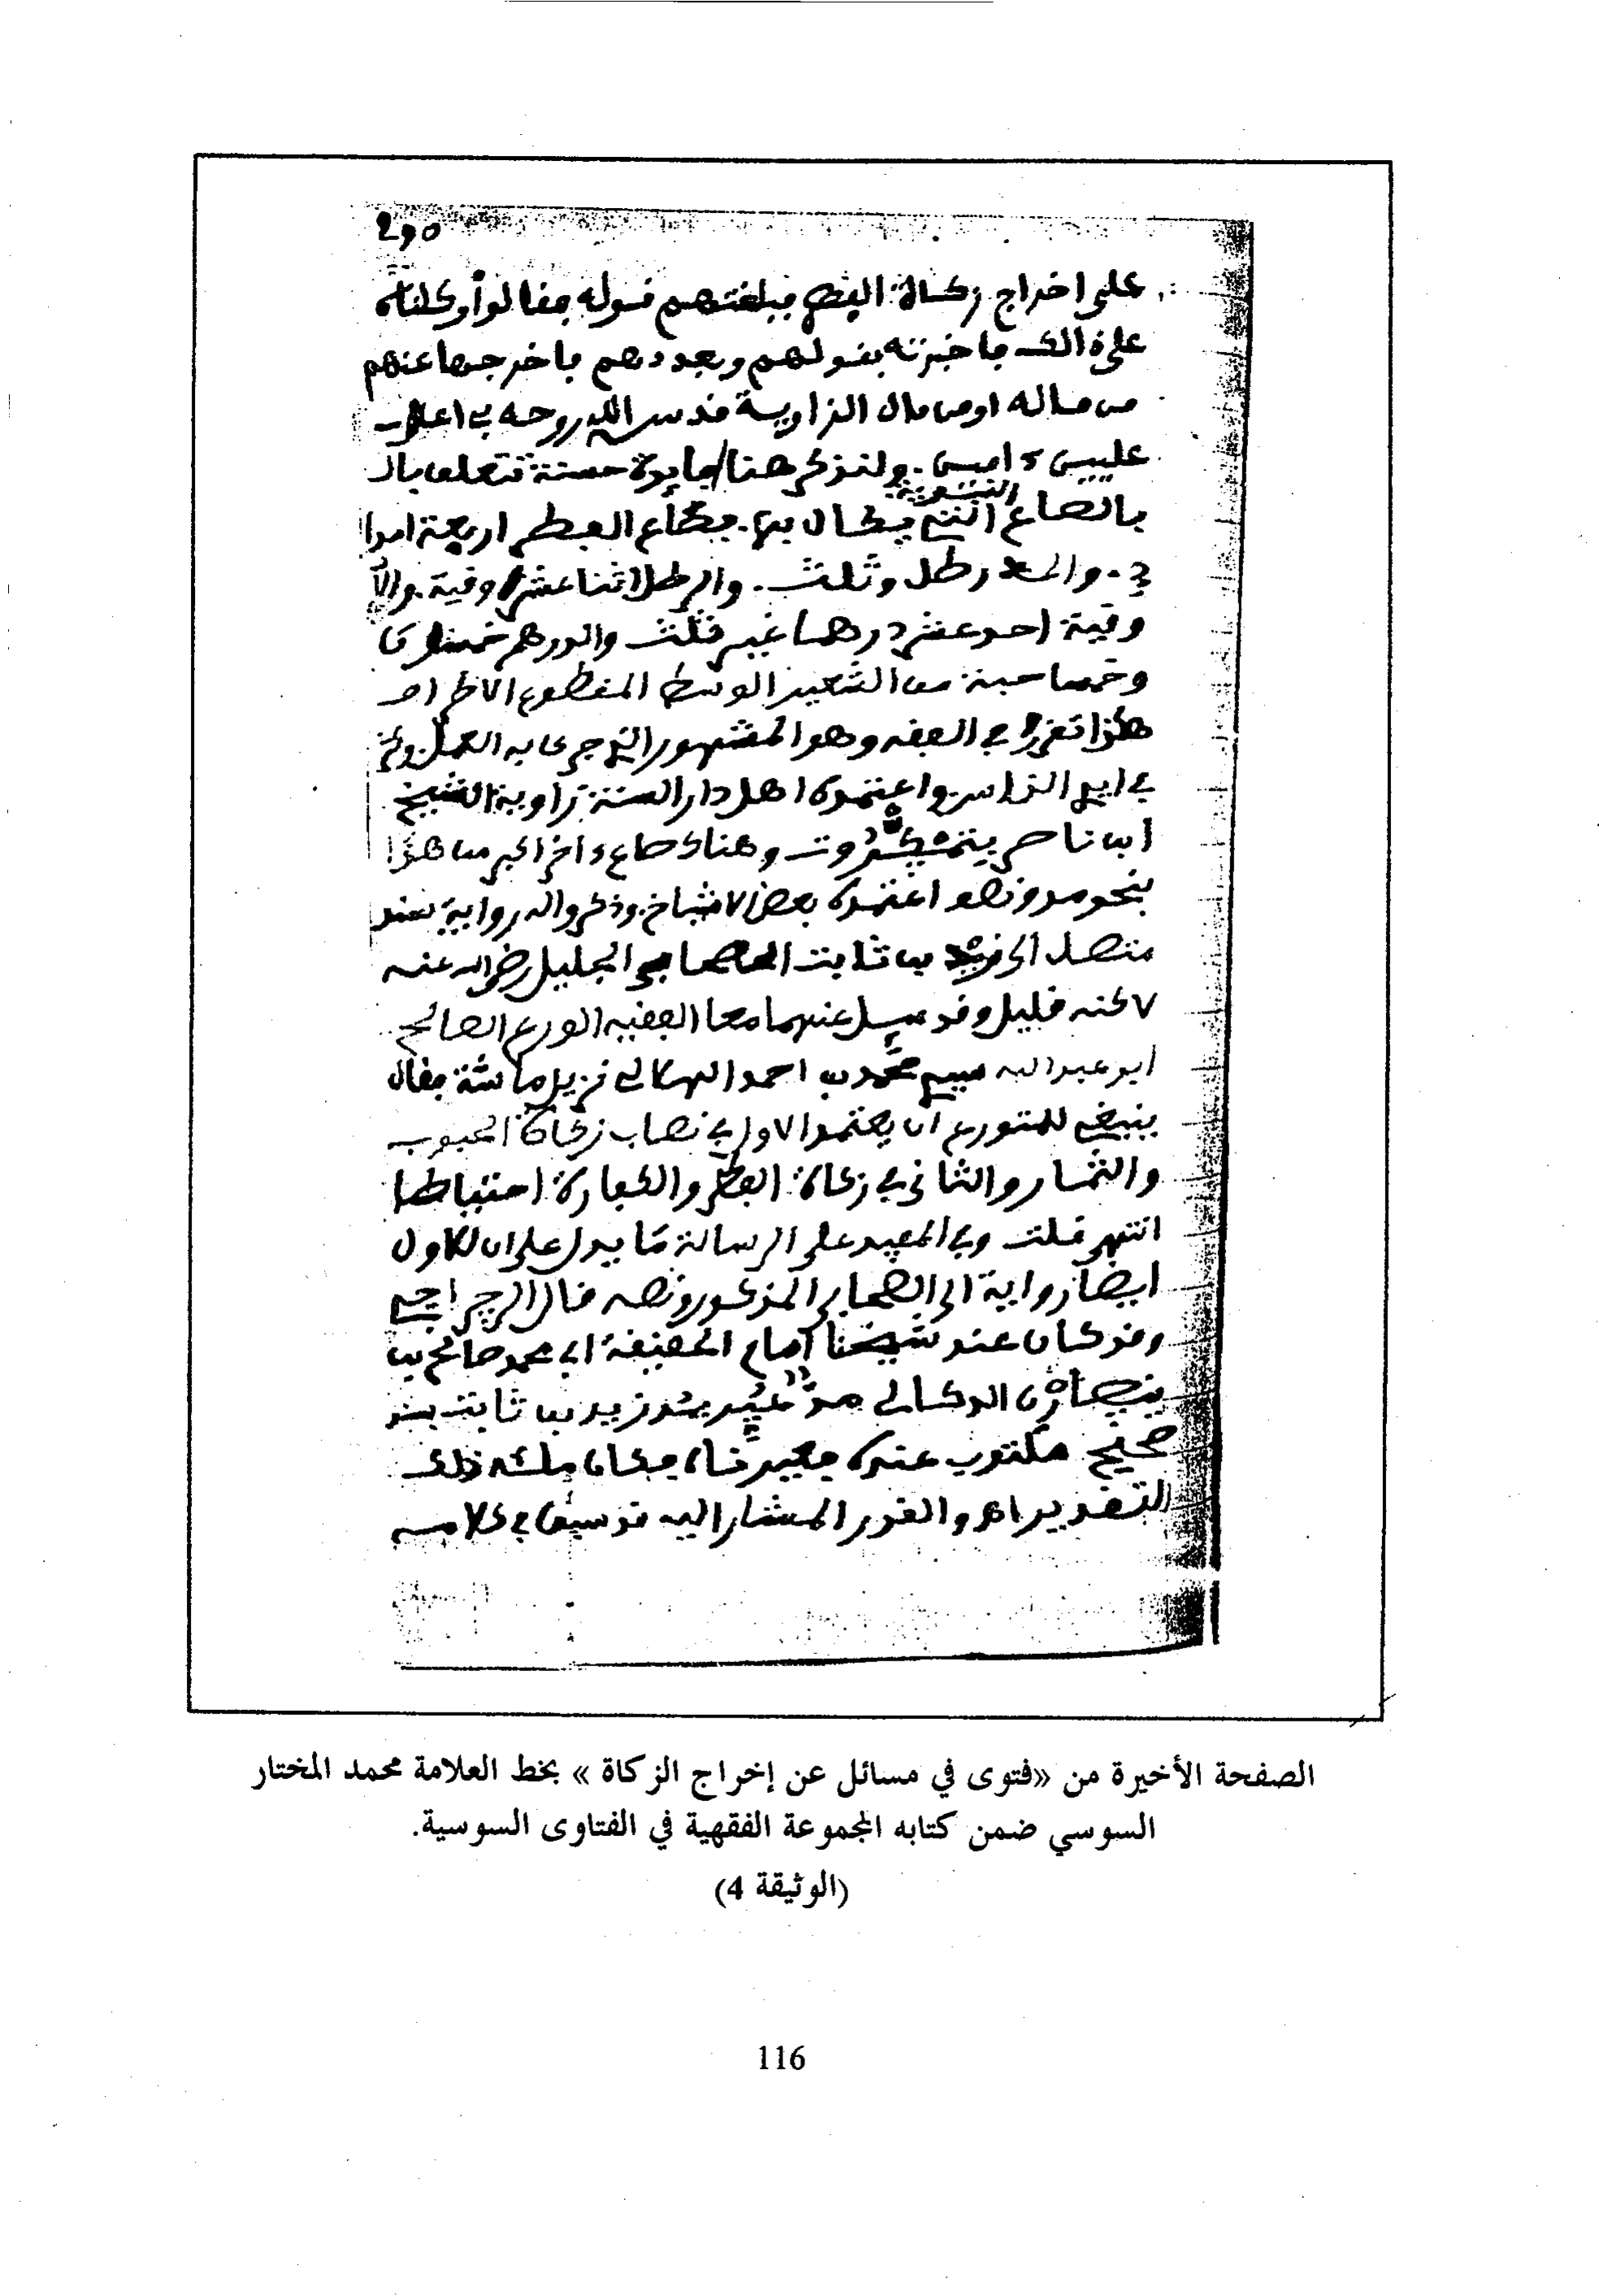 290
على اخراج زكاة الفطر فبلغتهم قوله فقالوا وكلناه
على ذالك فاخبرته بقولهم وبعددهم فاخرجها عنهم
من ماله او من مال الزاوية قدس الله روحه في اعلى
عليين ءامين. ولنذكر هنا فايدة حسنة تتعلق بالـ
بالصاع النبوي التي يكال بها. فصاع الفطر اربعة امدا
د. والمد رطل وثلث. والرطل اثنا عشر اوقية. والأ
وقية احد عشر درهما غير ثلث والدرهم خمسون
وخمسا حبة من الشعير الوسط المقطوع الاطراف
هكذا تقرر في الفقه وهو المشهور الذي جرى به العمل
في ايدي الناس واعتمده اهل دار السنة زاوية الشيخ
ابن ناصر بتمكروت وهناك صاع ءاخر اكبر من هذا
بنحو مد ونصف اعتمده بعض الاشياخ. وذكروا له رواية بسند
متصل الى زيد بن ثابت الصحابي الجليل رضي الله عنه
لاكنه قليل وقد سيل عنهما معا الفقيه الورع الصالح
ابو عبد الله سيدي محمد بن احمد نزيل ماسة فقال
ينبغي للمتورع ان يعتمد الاول في نصاب زكاة الحبوب
والثمار والثاني في زكاة الفطر والكفارة احتياطا
انتهى قلت وفي المفيد على الرسالة ما يدل على ان للاول
ايضا رواية الى الصحابي المذكور ونصه قال الرجراجي
وقد كان عند شيخنا امام الحقيقة ابي محمد صالح بن
ينصارن الدكالي مد عير بمد زيد بن ثابت بسند
صحيح مكتوب عنده فعيرناه فكان ملئه ذلك
التقدير اهـ والقدر المشار اليه قد سبق في كلامه
الصفحة الأخيرة من «فتوى في مسائل عن إخراج الزكاة» بخط العلامة محمد المختار
السوسي ضمن كتابه المجموعة الفقهية في الفتاوى السوسية.
(الوثيقة 4)
116